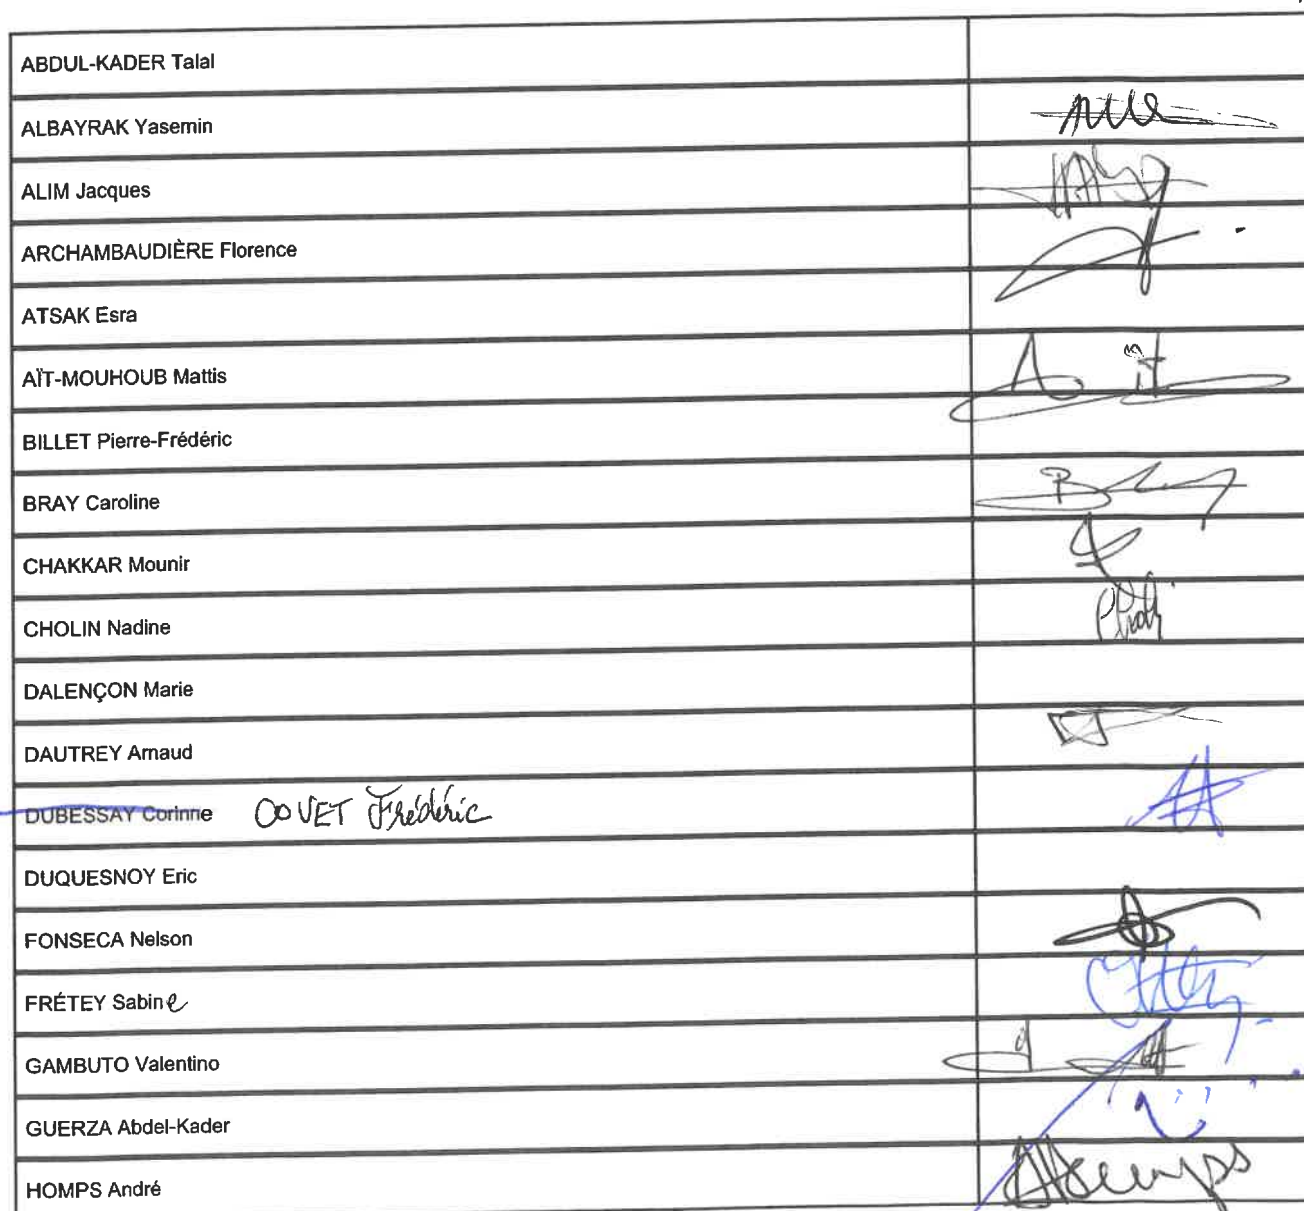 ABDUL-KADER Talal
ALBAYRAK Yasemin
ALIM Jacques
ARCHAMBAUDIÈRE Florence
ATSAK Esra
AÏT-MOUHOUB Mattis
BILLET Pierre-Frédéric
BRAY Caroline
CHAKKAR Mounir
CHOLIN Nadine
DALENÇON Marie
DAUTREY Arnaud
DUBESSAY Corinne Frédéric
DUQUESNOY Eric
FONSECA Nelson
FRÉTEY Sabine
GAMBUTO Valentino
GUERZA Abdel-Kader
HOMPS André